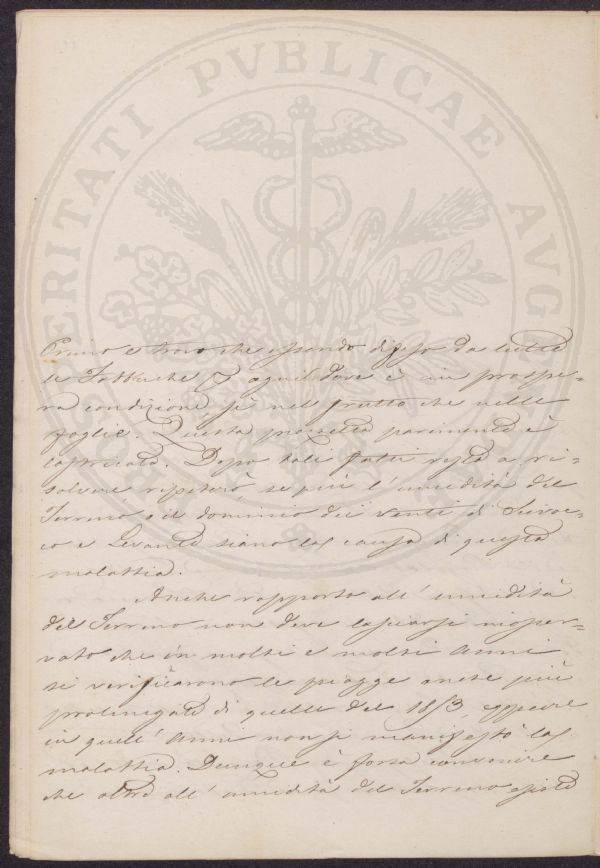 PROSPERITATI PVBLICAE AVG
Primo e trovo che essendo difeso da tutte
le Fabbriche aquilodare è in prospe=
ra condizione sì nel frutto che nelle
foglie. Questa piazzetta parimente è
lastricata. Dopo tali fatti resta a ri=
solvere ripeterò, se più l'umidità del
Terreno, o il dominio dei venti di Siroc=
co e Levante siano la causa di questa
malattia.
Anche rapporto all' umidità
del Terreno non deve lasciarsi inosser=
vato che in molti e molti Anni
si verificarono le piogge anche più
prolungate di quelle del 1853, eppure
in quell' Anni non si manifestò la
malattia. Dunque è forza convenire
che oltre all' umidità del Terreno esiste